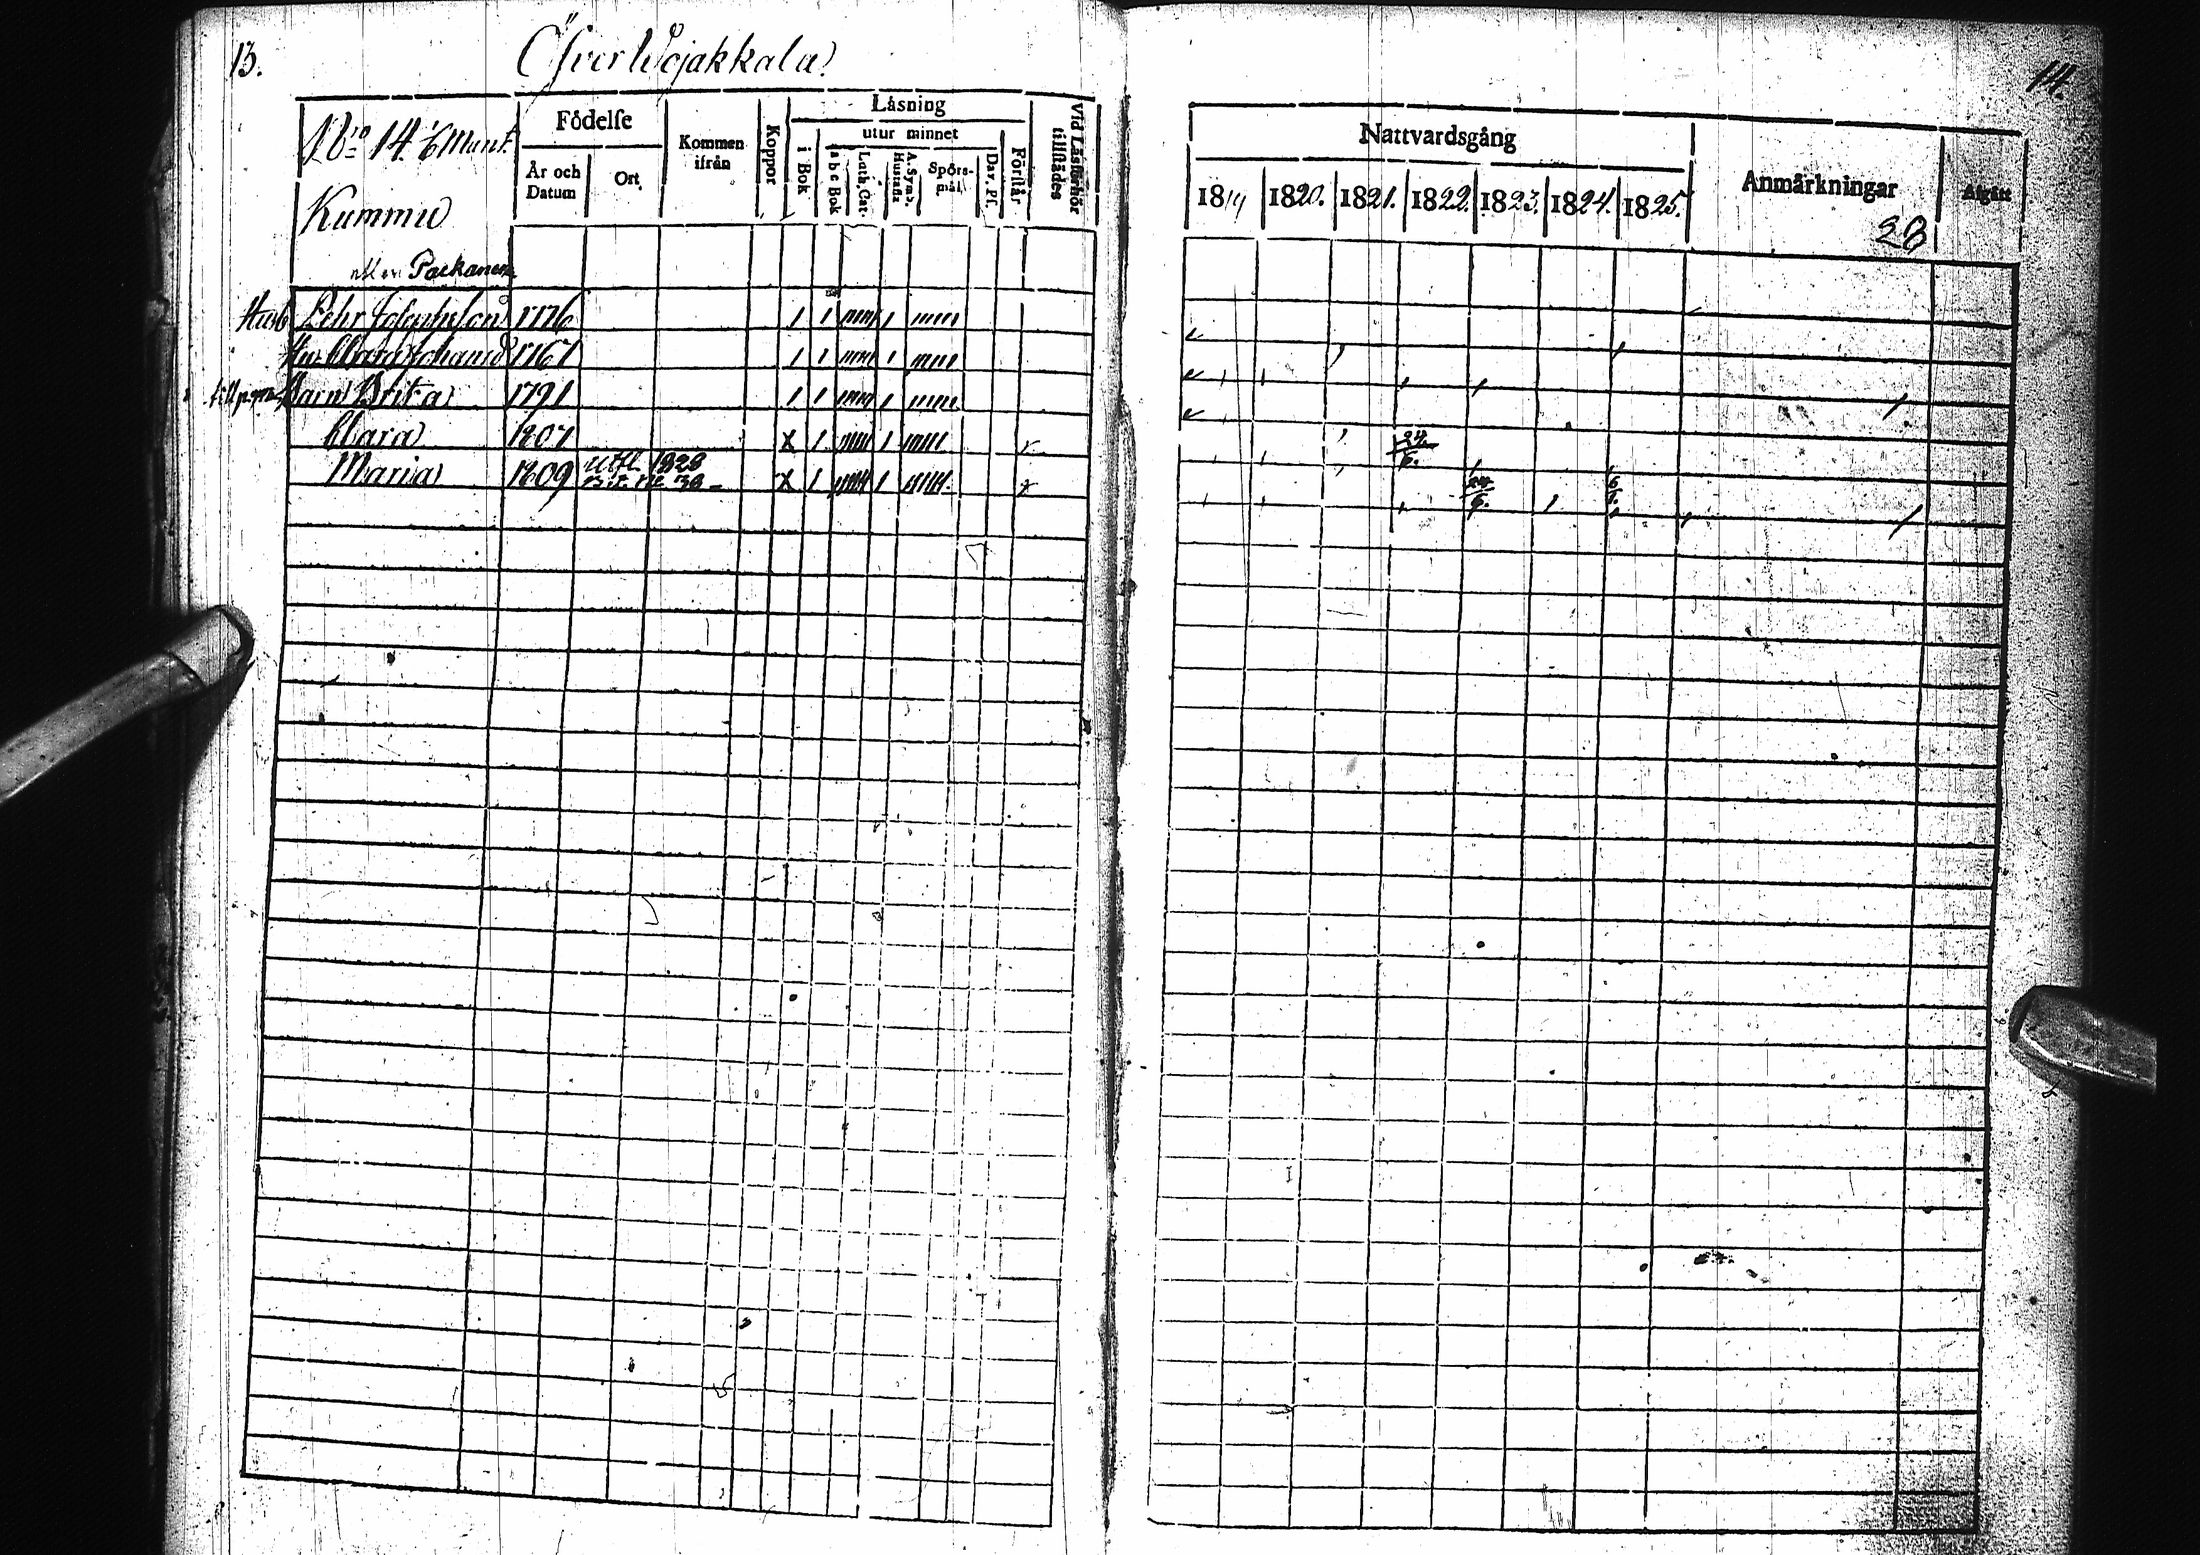 13.
Öfver Wojakkala
N:ro 14. 1/6 Mant.
Kummu
Födelse
År och Datum
Ort
Kommen ifrån
Koppor
Läsning
i Bok
utur minnet
a b c Bok
Luth. Cat.
A. Symb. Hustafla
Spörsmål
Dav. Ps.
Förstår
Vid Läsförhör tillstädes
Packanen
Husb Pehr Josephson 1776
Hu. Clara Johansd 1767
Barn Brita 1791
Clara 1807
Maria 1809 1828
14.
Nattvardsgång
1819 1820. 1821. 1822. 1823. 1824. 1825.
Anmärkningar
28
Afgått
24. 6.
24 6.
6 1.